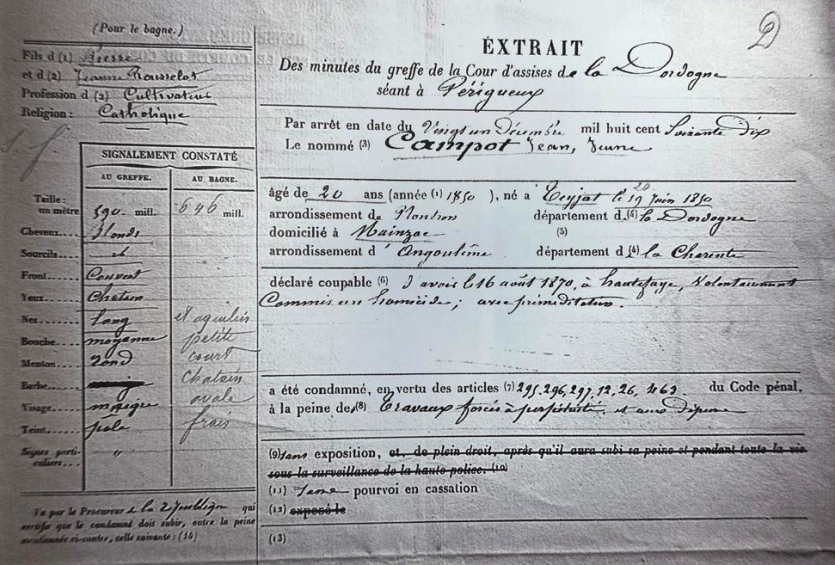 (Pour le bagne.)
Fils d (1) Pierre
et d (2) Jeanne Rousselot
Profession d (2) Cultivateur
Religion : Catholique
SIGNALEMENT CONSTATÉ
AU GREFFE. AU BAGNE.
Taille : un mètre 590 mill. 646 mill.
Cheveux Blonds
Sourcils id
Front Couvert
Yeux Chatain
Nez long et aquilin
Bouche moyenne petite
Menton rond court
Barbe chatain
Visage maigre ovale
Teint pâle frais
Signes particuliers "
Vu par le Procureur de la République qui
certifie que le condamné doit subir, outre la peine
mentionnée ci-contre, celle suivante : (14)
2
EXTRAIT
Des minutes du greffe de la Cour d'assises de la Dordogne
séant à Périgueux
Par arrêt en date du Vingt un Décembre mil huit cent Soixante dix
Le nommé (3) Campot Jean, Jeune
âgé de 20 ans (année (1) 1850 ), né à Teyjat le 19 Juin 1850
20
arrondissement de Nontron département d (4) la Dordogne
domicilié à Mainzac (5)
arrondissement d'Angoulême département d (4) la Charente
déclaré coupable (6) D'avoir le 16 août 1870, à hautefaye, volontairement
Commis un homicide ; avec préméditation.
a été condamné, en vertu des articles (7) 295, 296, 297, 12, 26, 463 du Code pénal,
à la peine de (8) travaux forcés à perpétuité et aux dépens
(9) sans exposition, et, de plein droit, après qu'il aura subi sa peine et pendant toute la vie
sous la surveillance de la haute police. (10)
(11) Sans pourvoi en cassation
(12) exposé le
(13)